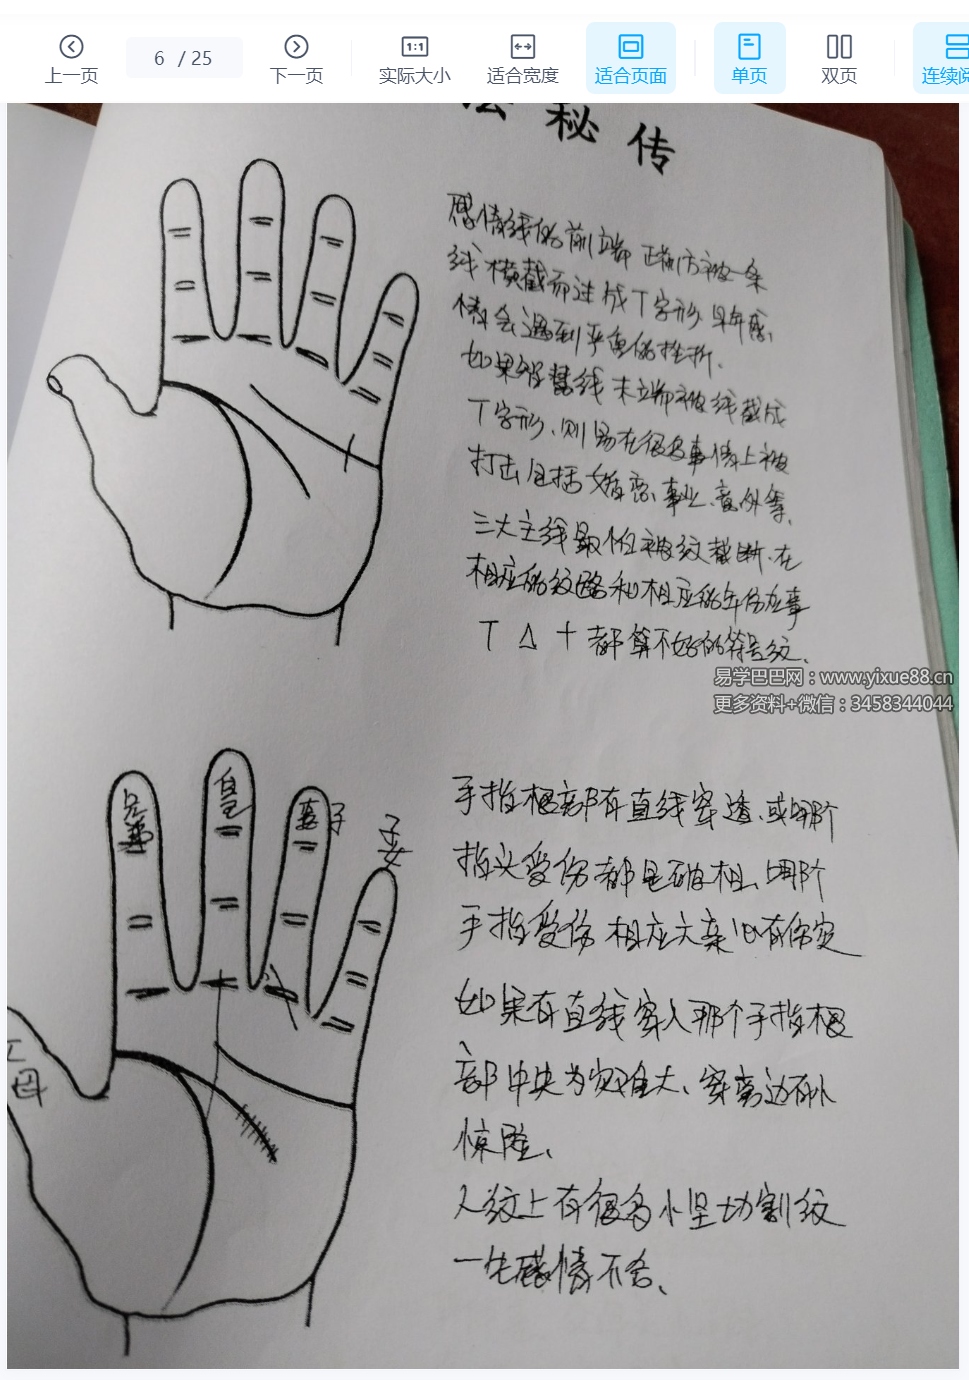 上一页
6 / 25
下一页
1:1
实际大小
适合宽度
适合页面
单页
双页
连续阅
法秘传
感情线的前端 正前方被一条
线横截而过成丁字形 早年感
情会遇到严重的挫折.
如果智慧线末端被线截成
丁字形、则易在很多事情上被
打击包括婚恋、事业、意外等、
三大主线最怕被纹截断.在
相应的纹路和相应的年份应事
丁 △ 十 都算不好的符号纹、
易学巴巴网：www.yixue88.cn
更多资料+微信：3458344044
兄弟
自己
妻子
子女
父母
手指根部有直线穿透、或哪个
指头受伤都是破相、哪个
手指受伤 相应六亲必有伤灾
如果有直线穿入那个手指根
部中央为灾难大、穿旁边有小
惊险、
人纹上有很多小竖切割纹
一生感情不舍、